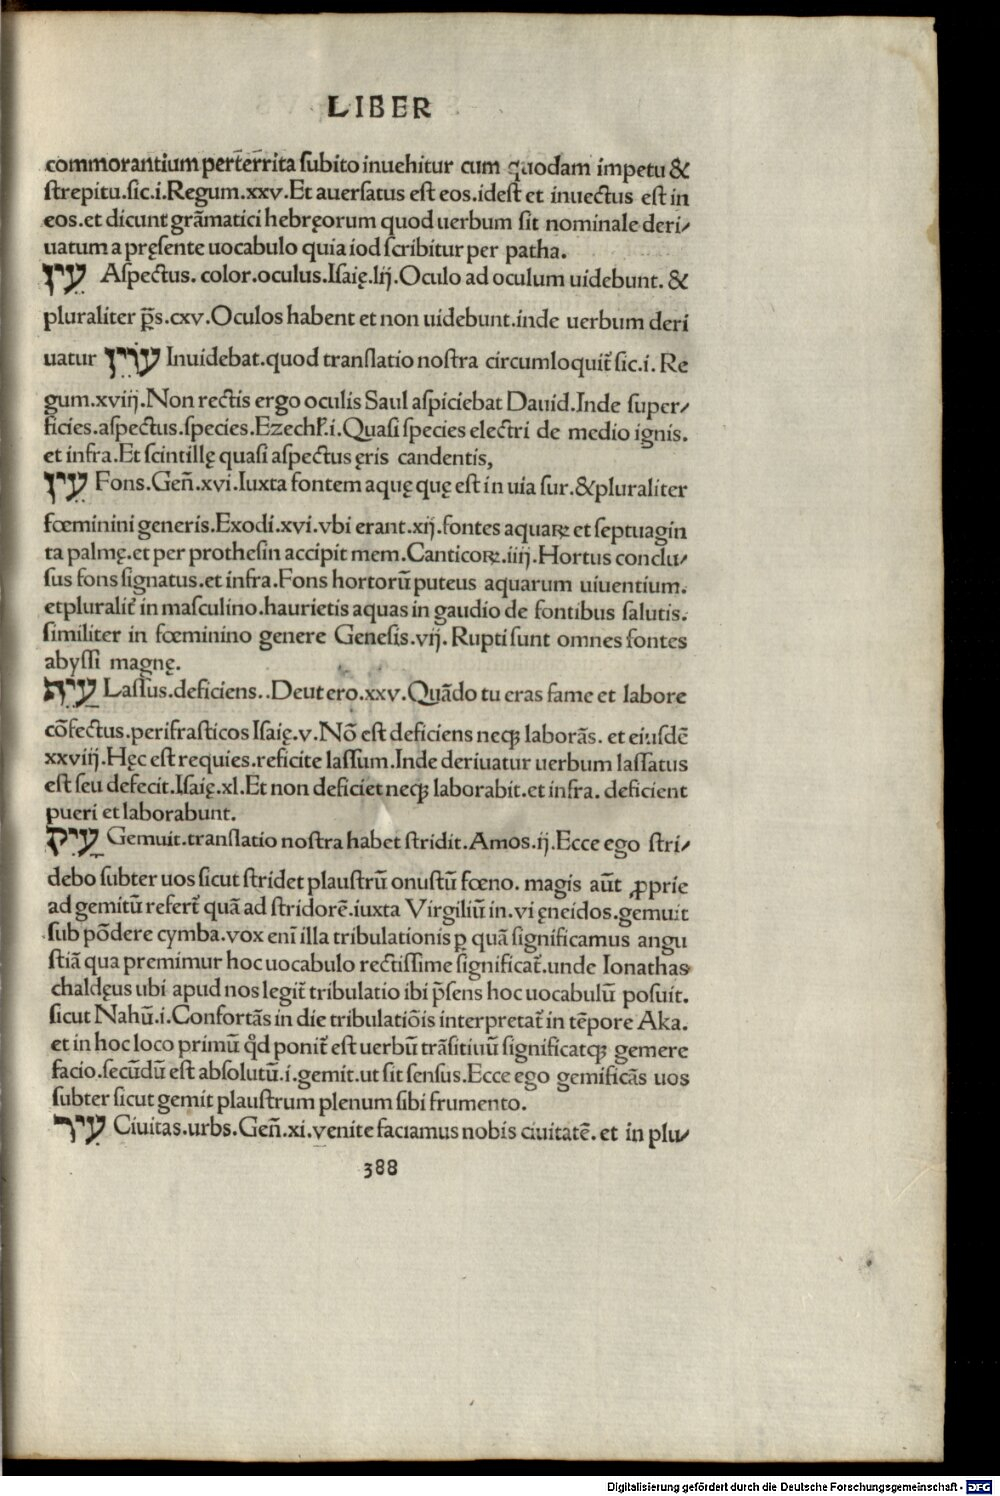 LIBER
commorantium perter̄rita ſubito inuehitur cum quodam impetu &
ſtrepitu.ſic.i.Regum.xxv.Et auerſatus eſt eos.ideſt et inuectus eſt in
eos.et dicunt grāmatici hebręorum quod uerbum ſit nominale deri⸗
uatum a pręſente uocabulo quia iod ſcribitur per patha.
עַיִן Aſpectus. color.oculus.Iſaię.lij.Oculo ad oculum uidebunt. &
pluraliter p̄s.cxv.Oculos habent et non uidebunt.inde uerbum deri
uatur עוֹיֵן Inuidebat.quod tranſlatio noſtra circumloquit᷑ ſic.i. Re
gum.xviij.Non rectis ergo oculis Saul aſpiciebat Dauid.Inde ſuper⸗
ficies.aſpectus.ſpecies.Ezechł.i.Quaſi ſpecies electri de medio ignis.
et infra.Et ſcintillę quaſi aſpectus ęris candentis,
עַיִן Fons.Geñ.xvi.Iuxta fontem aquę quę eſt in uia ſur.&pluraliter
fœminini generis.Exodi.xvi.vbi erant.xij.fontes aquaꝝ et ſeptuagin
ta palmę.et per protheſin accipit mem.Canticoꝝ.iiij.Hortus conclu⸗
ſus fons ſignatus.et infra.Fons hortorū puteus aquarum uiuentium.
etpluralit᷑ in maſculino.haurietis aquas in gaudio de fontibus ſalutis.
ſimiliter in fœminino genere Geneſis.vij.Rupti ſunt omnes fontes
abyſſi magnę.
עָיֵף Laſſus.deficiens..Deutero.xxv.Quādo tu eras fame et labore
cōfectus.perifraſticos Iſaię.v.Nō eſt deficiens neqꝫ laborās. et eiuſdē
xxviij.Hęc eſt requies.reficite laſſum.Inde deriuatur uerbum laſſatus
eſt ſeu defecit.Iſaię.xl.Et non deficiet neqꝫ laborabit.et infra. deficient
pueri et laborabunt.
עָיַק Gemuit.tranſlatio noſtra habet ſtridit.Amos.ij.Ecce ego ſtri⸗
debo ſubter uos ſicut ſtridet plauſtrū onuſtū fœno. magis aūt ꝓprie
ad gemitū refert᷑ quā ad ſtridorē.iuxta Virgiliū in.vi ęneidos.gemuit
ſub pōdere cymba.vox enī illa tribulationis ꝑ quā ſignificamus angu
ſtiā qua premimur hoc uocabulo rectiſſime ſignificat᷑.unde Ionathas
chaldęus ubi apud nos legit᷑ tribulatio ibi p̄ſens hoc uocabulū poſuit.
ſicut Nahū.i.Confortās in die tribulatiōis interpretat᷑ in tēpore Aka.
et in hoc loco primū qd̄ ponit᷑ eſt uerbū trāſitiuū ſignificatqꝫ gemere
facio.ſecūdū eſt abſolutū.i.gemit.ut ſit ſenſus.Ecce ego gemificās uos
ſubter ſicut gemit plauſtrum plenum ſibi frumento.
עִיר Ciuitas.urbs.Geñ.xi.venite faciamus nobis ciuitatē. et in plu⸗
388
Digitalisierung gefördert durch die Deutsche Forschungsgemeinschaft - DFG